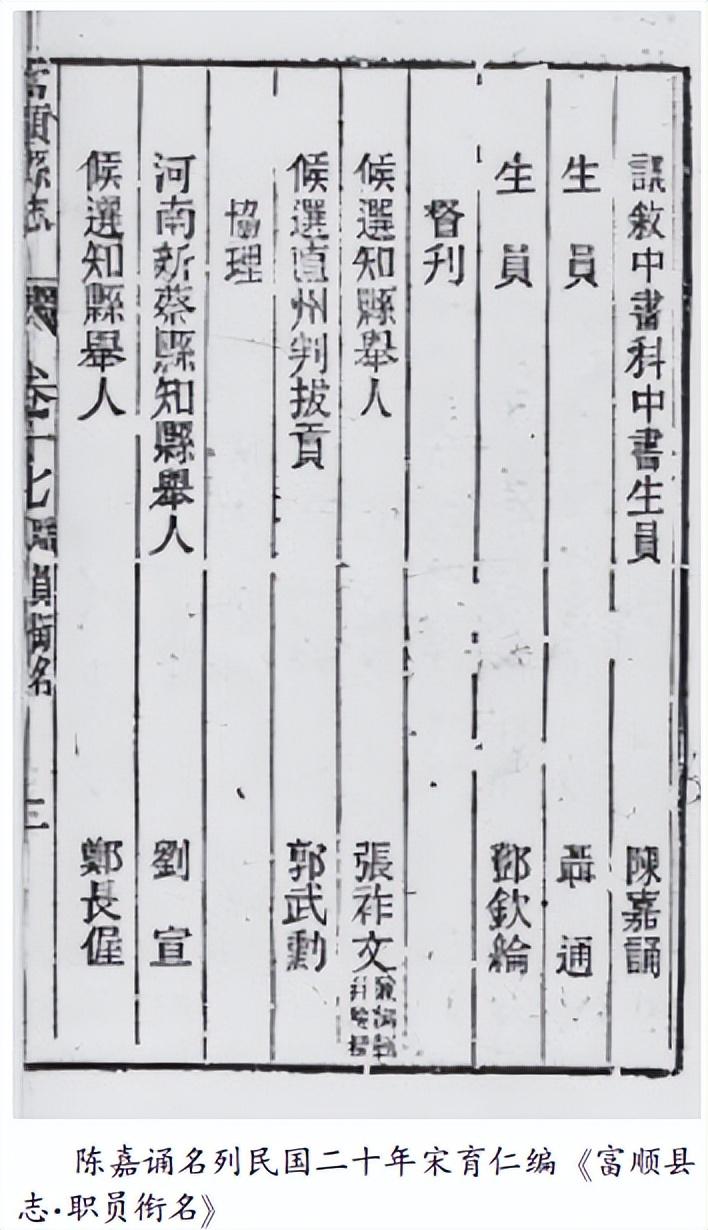 議敘中書科中書生員 陳嘉誦
生員 聶通
生員 鄧欽綸
督刊
候選知縣舉人 張祚文
候選直州判拔貢 郭武勳
協理
河南新蔡縣知縣舉人 劉宣
候選知縣舉人 鄭長偓
富順縣志 卷十七 職員銜名 三
陈嘉诵名列民国二十年宋育仁编《富顺县
志·职员衔名》